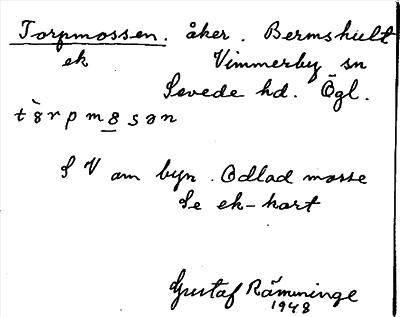 Torpmossen. åker. Bermshult
ek Vimmerby sn
Sevede hd. Ögl.
t8̀rpm8sən
S V om byn. Odlad mosse
Se ek-kart
Gustaf Rämminge
1948